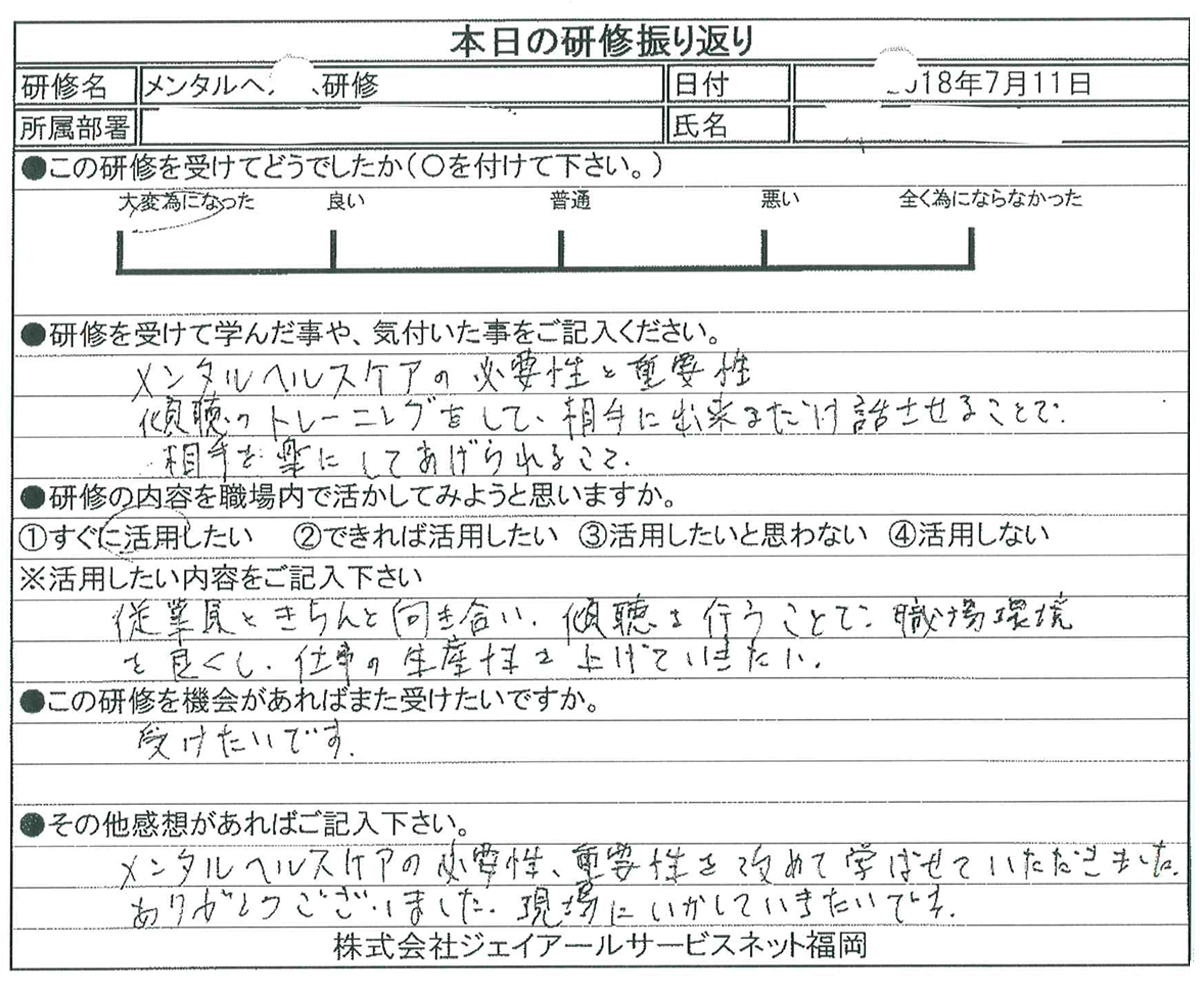 本日の研修振り返り
研修名 メンタルヘ 研修 日付 018年7月11日
所属部署 氏名
●この研修を受けてどうでしたか（○を付けて下さい。）
大変為になった 良い 普通 悪い 全く為にならなかった
●研修を受けて学んだ事や、気付いた事をご記入ください。
メンタルヘルスケアの必要性と重要性
傾聴のトレーニングをして、相手に出来るだけ話させることで、
相手を楽にしてあげられること。
●研修の内容を職場内で活かしてみようと思いますか。
①すぐに活用したい ②できれば活用したい ③活用したいと思わない ④活用しない
※活用したい内容をご記入下さい
従業員ときちんと向き合い、傾聴を行うことで、職場環境
を良くし、仕事の生産性を上げていきたい。
●この研修を機会があればまた受けたいですか。
受けたいです。
●その他感想があればご記入下さい。
メンタルヘルスケアの必要性、重要性を改めて学ばせていただきました。
ありがとうございました。現場にいかしていきたいです。
株式会社ジェイアールサービスネット福岡